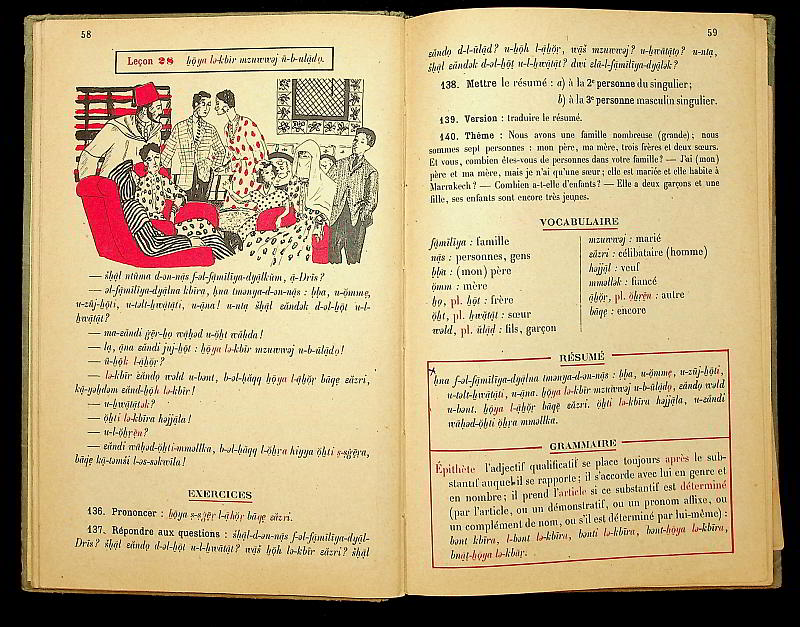 58
Leçon 28 ḫōya lə-kbīr mzuwwəj ū-b-ulādo̩.
— šḥāl ntūma d-ən-nās f-əl-fāmīlīya-dyālkŭm, ā-Drīs?
— əl-fāmīlīya-dyālna kbīra, ḥna tmənya-d-ən-nās : ḅḅa, u-ömme̩,
u-zūj-ḫōti, u-təlt-ḫwātāti, u-āna! u-nta šḥāl ɛāndək d-əl-ḫōt u-l-
ḫwātāt?
— ma-ɛāndi ġēr-ḫo̩ wāḥəd u-öḫt wāḥda!
— la, āna ɛāndi juj-ḫōt : ḫōya lə-kbīr mzuwwəj u-b-ulādo̩!
— ū-ḫōk l-āḫŏr?
— lə-kbīr ɛāndo̩ wəld u-bənt, b-əl-ḥāqq ḫōya l-āḫŏr bāqe̩ ɛāzri,
kā-yəḫdəm ɛānd-ḫōh lə-kbīr!
— u-ḫwātātək?
— öḫti lə-kbīra həjjāla!
— u-l-öḫrēn?
— ɛāndi wāḥəd-öḫti-mməllka, b-əl-ḥāqq l-öḫra hiyya öḫti ṣ-ṣġēra,
bāqe̩ kā-təmši l-əs-səkwīla!
EXERCICES
136. Prononcer : ḫōya ṣ-ṣġēr l-āḫŏr bāqe̩ ɛāzri.
137. Répondre aux questions : šḥāl-d-ən-nās f-əl-fāmīlīya-dyāl-
Drīs? šḥāl ɛāndo̩ d-əl-ḫōt u-l-ḫwātāt? wāš ḫōh lə-kbīr ɛāzri? šḥāl
59
ɛāndo̩ d-l-ūlād? u-ḫōh l-āḫŏr, wāš mzuwwəj? u-ḫwātāto̩? u-nta,
šḥāl ɛāndək d-əl-ḫōt u-l-ḫwātāt? dwi ɛlā-l-fāmīlīya-dyālək?
138. Mettre le résumé : a) à la 2e personne du singulier;
b) à la 3e personne masculin singulier.
139. Version : traduire le résumé.
140. Thème : Nous avons une famille nombreuse (grande); nous
sommes sept personnes : mon père, ma mère, trois frères et deux sœurs.
Et vous, combien êtes-vous de personnes dans votre famille? — J'ai (mon)
père et ma mère, mais je n'ai qu'une sœur; elle est mariée et elle habite à
Marrakech? — Combien a-t-elle d'enfants? — Elle a deux garçons et une
fille, ses enfants sont encore très jeunes.
VOCABULAIRE
fāmīlīya : famille
nās : personnes, gens
ḅḅa : (mon) père
ömm : mère
ḫo̩, pl. ḫōt : frère
öḫt, pl. ḫwātāt : sœur
wəld, pl. ūlād : fils, garçon
mzuwwəj : marié
ɛāzri : célibataire (homme)
həjjāl : veuf
mməllək : fiancé
āḫŏr, pl. öḫrēn : autre
bāqe̩ : encore
RÉSUMÉ
ḥna f-əl-fāmīlīya-dyālna tmənya-d-ən-nās : ḅḅa, u-ömme̩, u-zūj-ḫōti,
u-təlt-ḫwātāti, u-āna. ḫōya lə-kbīr mzuwwəj u-b-ulādo̩, ɛāndo̩ wəld
u-bənt. ḫōya l-āḫŏr bāqe̩ ɛāzri. öḫti lə-kbīra həjjāla, u-ɛāndi
wāḥəd-öḫti öḫra mməllka.
GRAMMAIRE
Épithète l'adjectif qualificatif se place toujours après le sub-
stantif auquel il se rapporte; il s'accorde avec lui en genre et
en nombre; il prend l'article si ce substantif est déterminé
(par l'article, ou un démonstratif, ou un pronom affixe, ou
un complément de nom, ou s'il est déterminé par lui-même) :
bənt kbīra, l-bənt lə-kbīra, bənti lə-kbīra, bənt-ḫōya lə-kbīra,
bnāt-ḫōya lə-kbār.